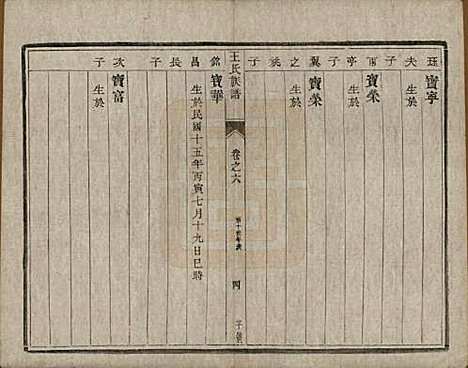 珏夫子
寶寧 生於
雨亭子
寶棠 生於
翼之兆子
寶榮 生於
王氏族譜
卷之六
四
銘昌長子
寶華 生於民國十五年丙寅七月十九日巳時
次子
寶富 生於